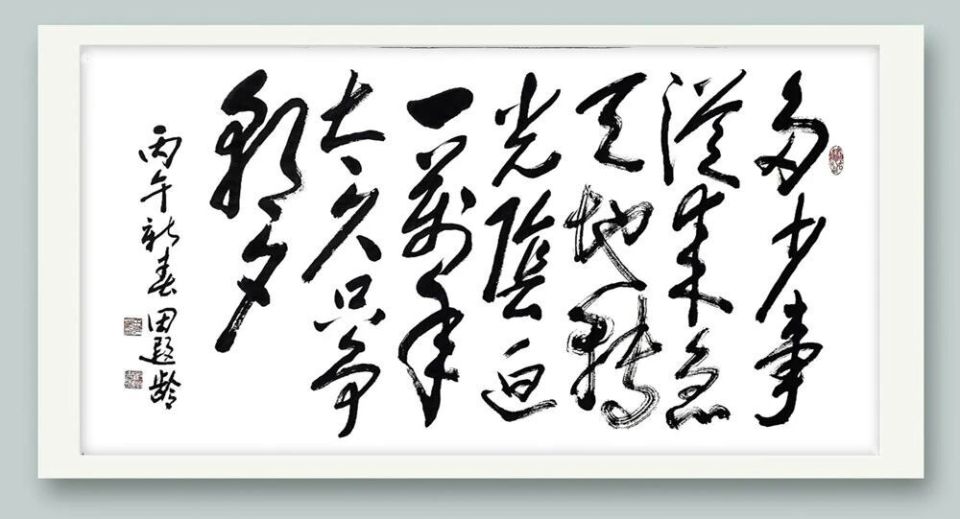 多少事
從来急
天地轉
光陰迫
一萬年
太久只争
朝夕
丙午新春田遐龄